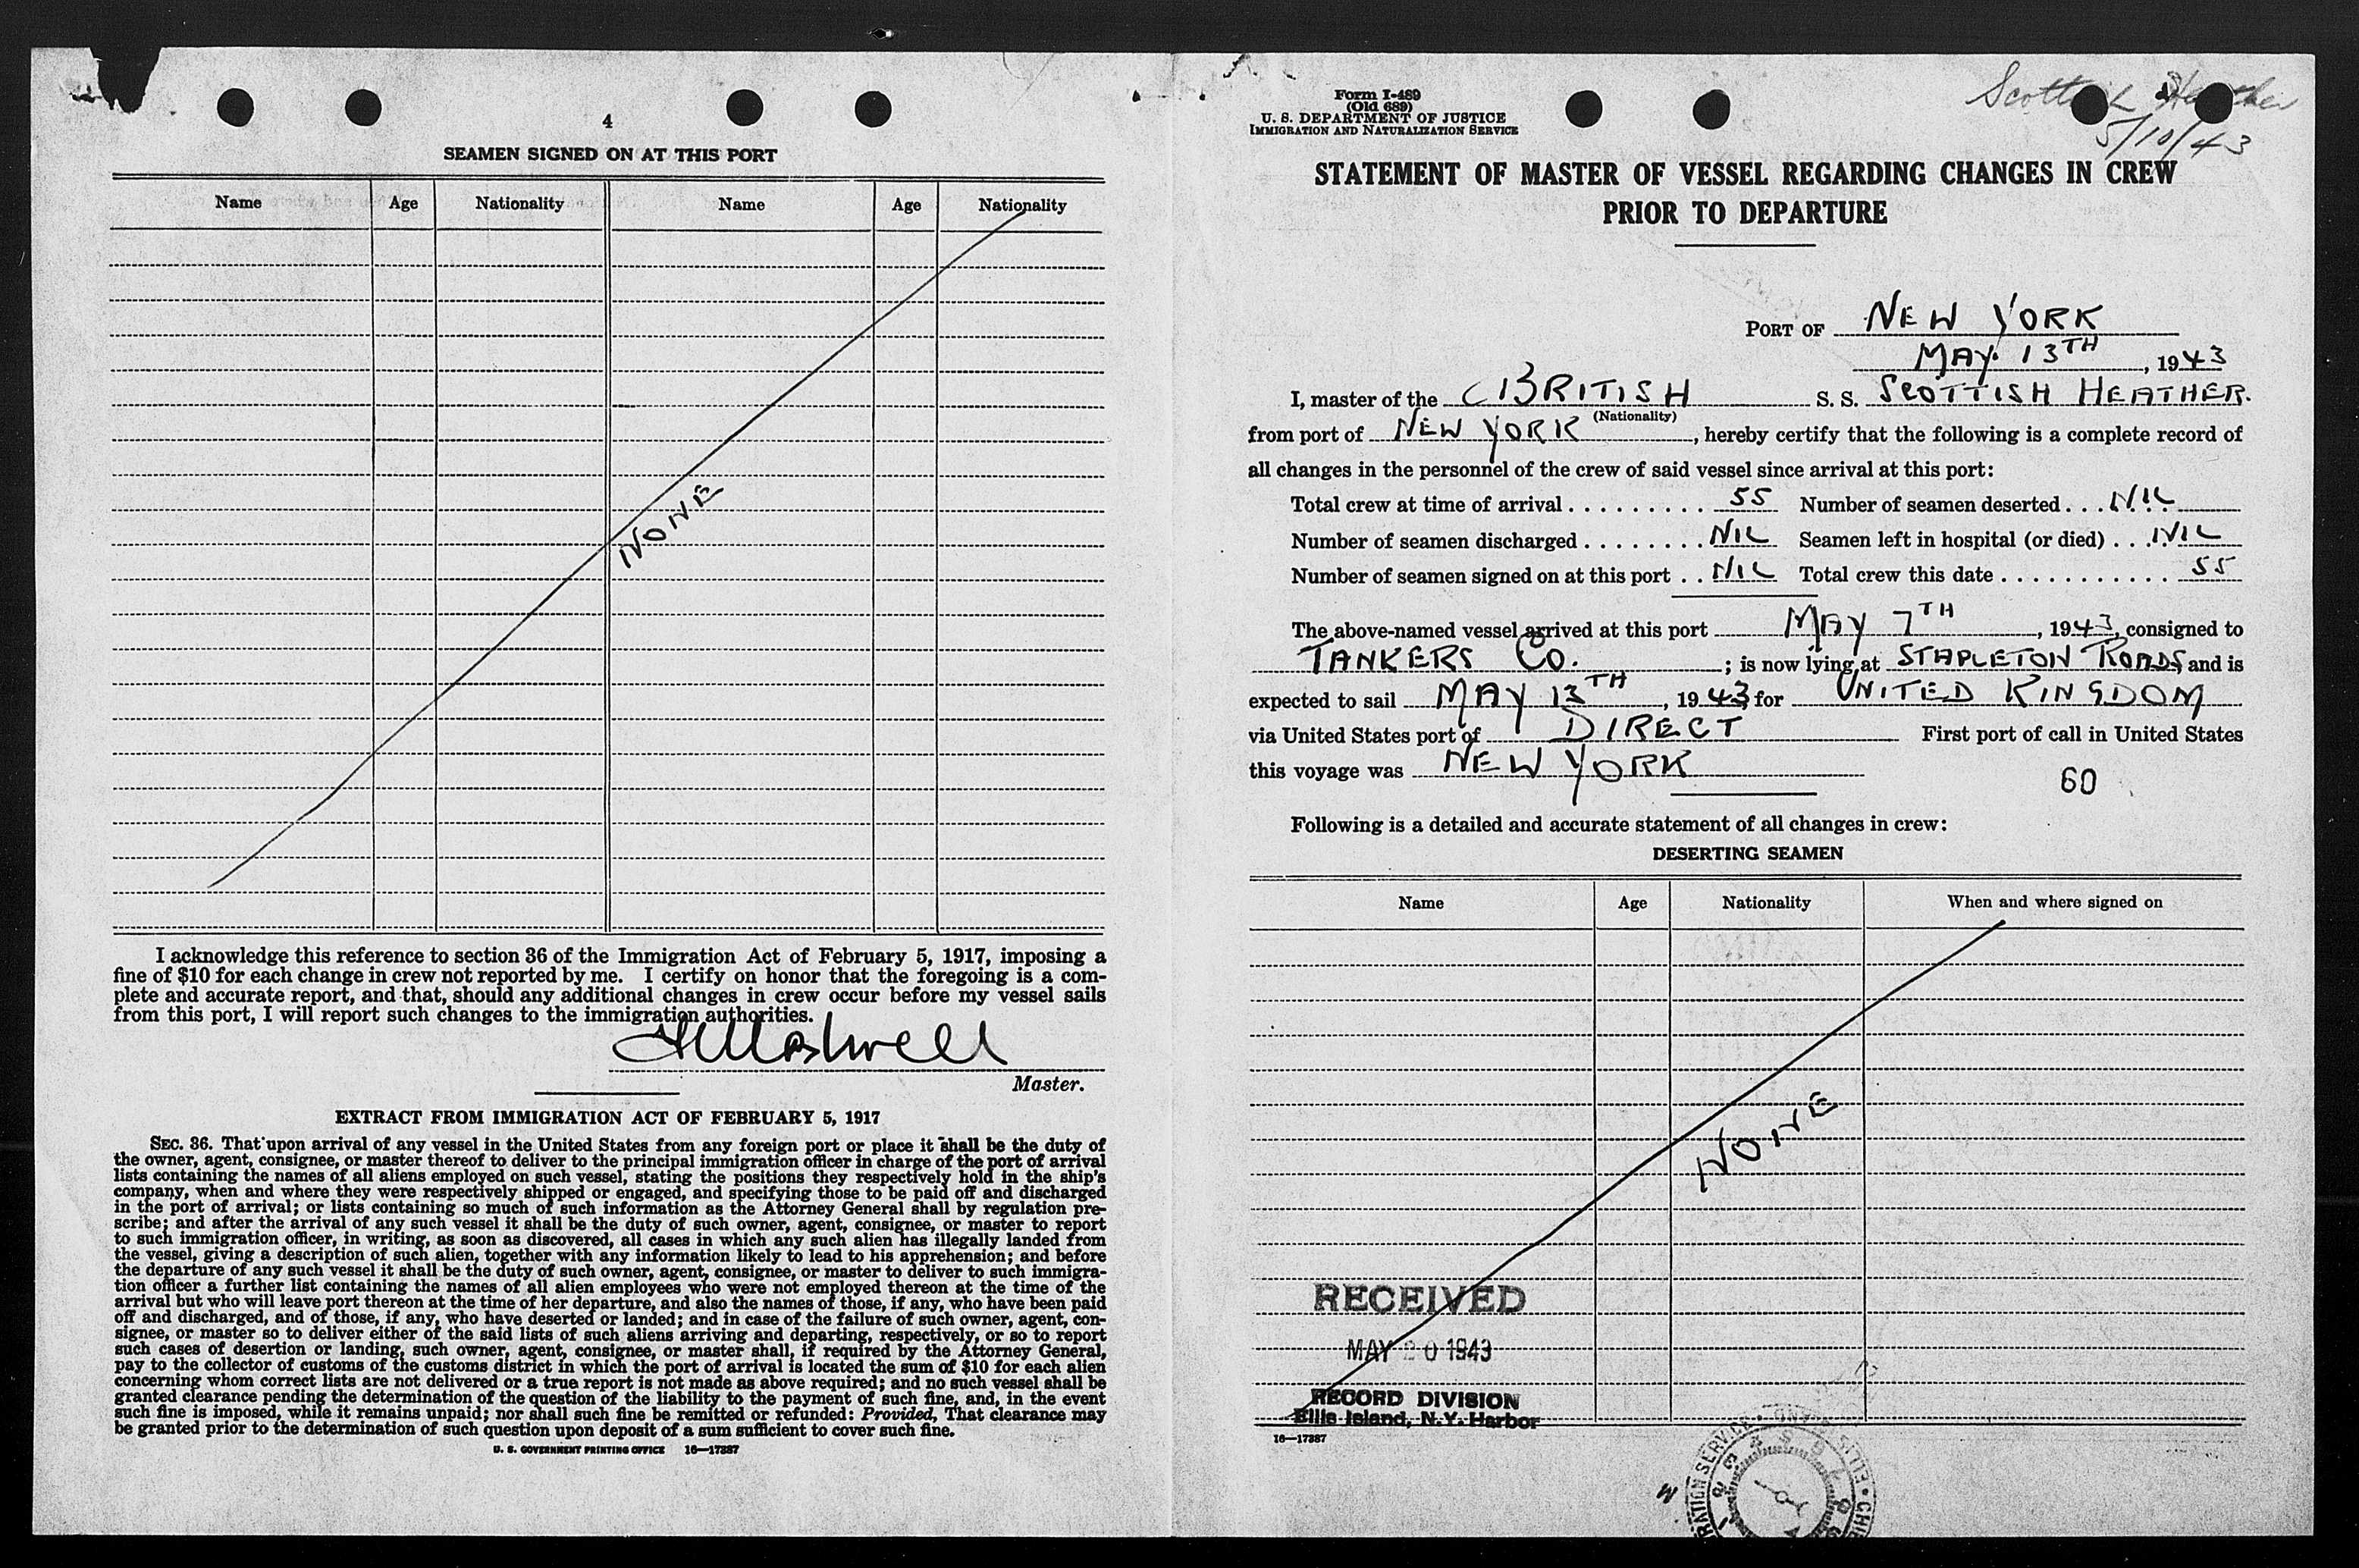 4
SEAMEN SIGNED ON AT THIS PORT
Name Age Nationality Name Age Nationality
NONE
I acknowledge this reference to section 36 of the Immigration Act of February 5, 1917, imposing a
fine of $10 for each change in crew not reported by me. I certify on honor that the foregoing is a com-
plete and accurate report, and that, should any additional changes in crew occur before my vessel sails
from this port, I will report such changes to the immigration authorities.
Master.
EXTRACT FROM IMMIGRATION ACT OF FEBRUARY 5, 1917
SEC. 36. That upon arrival of any vessel in the United States from any foreign port or place it shall be the duty of
the owner, agent, consignee, or master thereof to deliver to the principal immigration officer in charge of the port of arrival
lists containing the names of all aliens employed on such vessel, stating the positions they respectively hold in the ship's
company, when and where they were respectively shipped or engaged, and specifying those to be paid off and discharged
in the port of arrival; or lists containing so much of such information as the Attorney General shall by regulation pre-
scribe; and after the arrival of any such vessel it shall be the duty of such owner, agent, consignee, or master to report
to such immigration officer, in writing, as soon as discovered, all cases in which any such alien has illegally landed from
the vessel, giving a description of such alien, together with any information likely to lead to his apprehension; and before
the departure of any such vessel it shall be the duty of such owner, agent, consignee, or master to deliver to such immigra-
tion officer a further list containing the names of all alien employees who were not employed thereon at the time of the
arrival but who will leave port thereon at the time of her departure, and also the names of those, if any, who have been paid
off and discharged, and of those, if any, who have deserted or landed; and in case of the failure of such owner, agent, con-
signee, or master so to deliver either of the said lists of such aliens arriving and departing, respectively, or so to report
such cases of desertion or landing, such owner, agent, consignee, or master shall, if required by the Attorney General,
pay to the collector of customs of the customs district in which the port of arrival is located the sum of $10 for each alien
concerning whom correct lists are not delivered or a true report is not made as above required; and no such vessel shall be
granted clearance pending the determination of the question of the liability to the payment of such fine, and, in the event
such fine is imposed, while it remains unpaid; nor shall such fine be remitted or refunded: Provided, That clearance may
be granted prior to the determination of such question upon deposit of a sum sufficient to cover such fine.
U. S. GOVERNMENT PRINTING OFFICE 16—17887
Form I-489
(Old 689)
U. S. DEPARTMENT OF JUSTICE
IMMIGRATION AND NATURALIZATION SERVICE
Scottish Heather
5/10/43
STATEMENT OF MASTER OF VESSEL REGARDING CHANGES IN CREW
PRIOR TO DEPARTURE
PORT OF NEW YORK
MAY 13TH, 1943
I, master of the BRITISH S. S. SCOTTISH HEATHER.
(Nationality)
from port of NEW YORK, hereby certify that the following is a complete record of
all changes in the personnel of the crew of said vessel since arrival at this port:
Total crew at time of arrival . . . . . . . . . 55 Number of seamen deserted . . . NIL
Number of seamen discharged . . . . . . . . NIL Seamen left in hospital (or died) . . . NIL
Number of seamen signed on at this port . . NIL Total crew this date . . . . . . . . . . . . 55
The above-named vessel arrived at this port MAY 7TH, 1943, consigned to
TANKERS Co.; is now lying at STAPLETON ROADS, and is
expected to sail MAY 13TH, 1943, for UNITED KINGDOM
via United States port of DIRECT First port of call in United States
this voyage was NEW YORK
60
Following is a detailed and accurate statement of all changes in crew:
DESERTING SEAMEN
Name Age Nationality When and where signed on
NONE
RECEIVED
MAY 20 1943
RECORD DIVISION
Ellis Island, N.Y. Harbor
16—17887